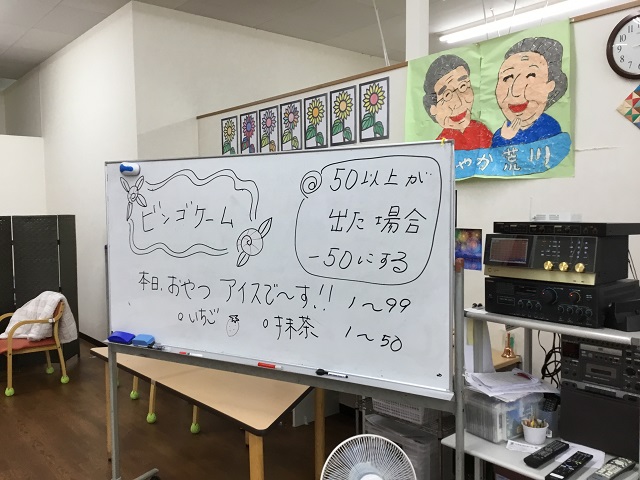 ビンゴゲーム
@ 50以上が
出た場合
-50にする
本日、おやつ アイスで〜す!! 1〜99
o いちご o 抹茶 1〜50
やか 荒川